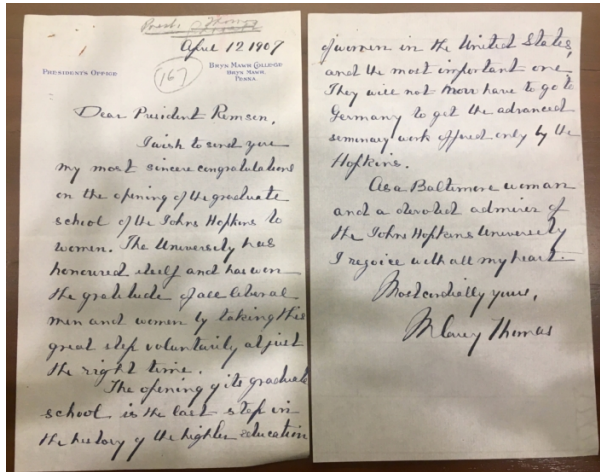 Presd. Thomas
April 12 1907
PRESIDENT'S OFFICE
BRYN MAWR COLLEGE
BRYN MAWR,
PENNA
167
Dear President Remsen,
I wish to send you
my most sincere congratulations
on the opening of the graduate
school of the Johns Hopkins to
women. The University has
honoured itself and has won
the gratitude of all liberal
men and women by taking this
great step voluntarily at just
the right time.
The opening of its graduate
school is the last step in
the history of the higher education
of women in the United States,
and the most important one
They will not now have to go to
Germany to get the advanced
seminary work offered only by the
Hopkins.
As a Baltimore woman
and a devoted admirer of
the Johns Hopkins University
I rejoice with all my heart.
Most cordially yours,
M Carey Thomas